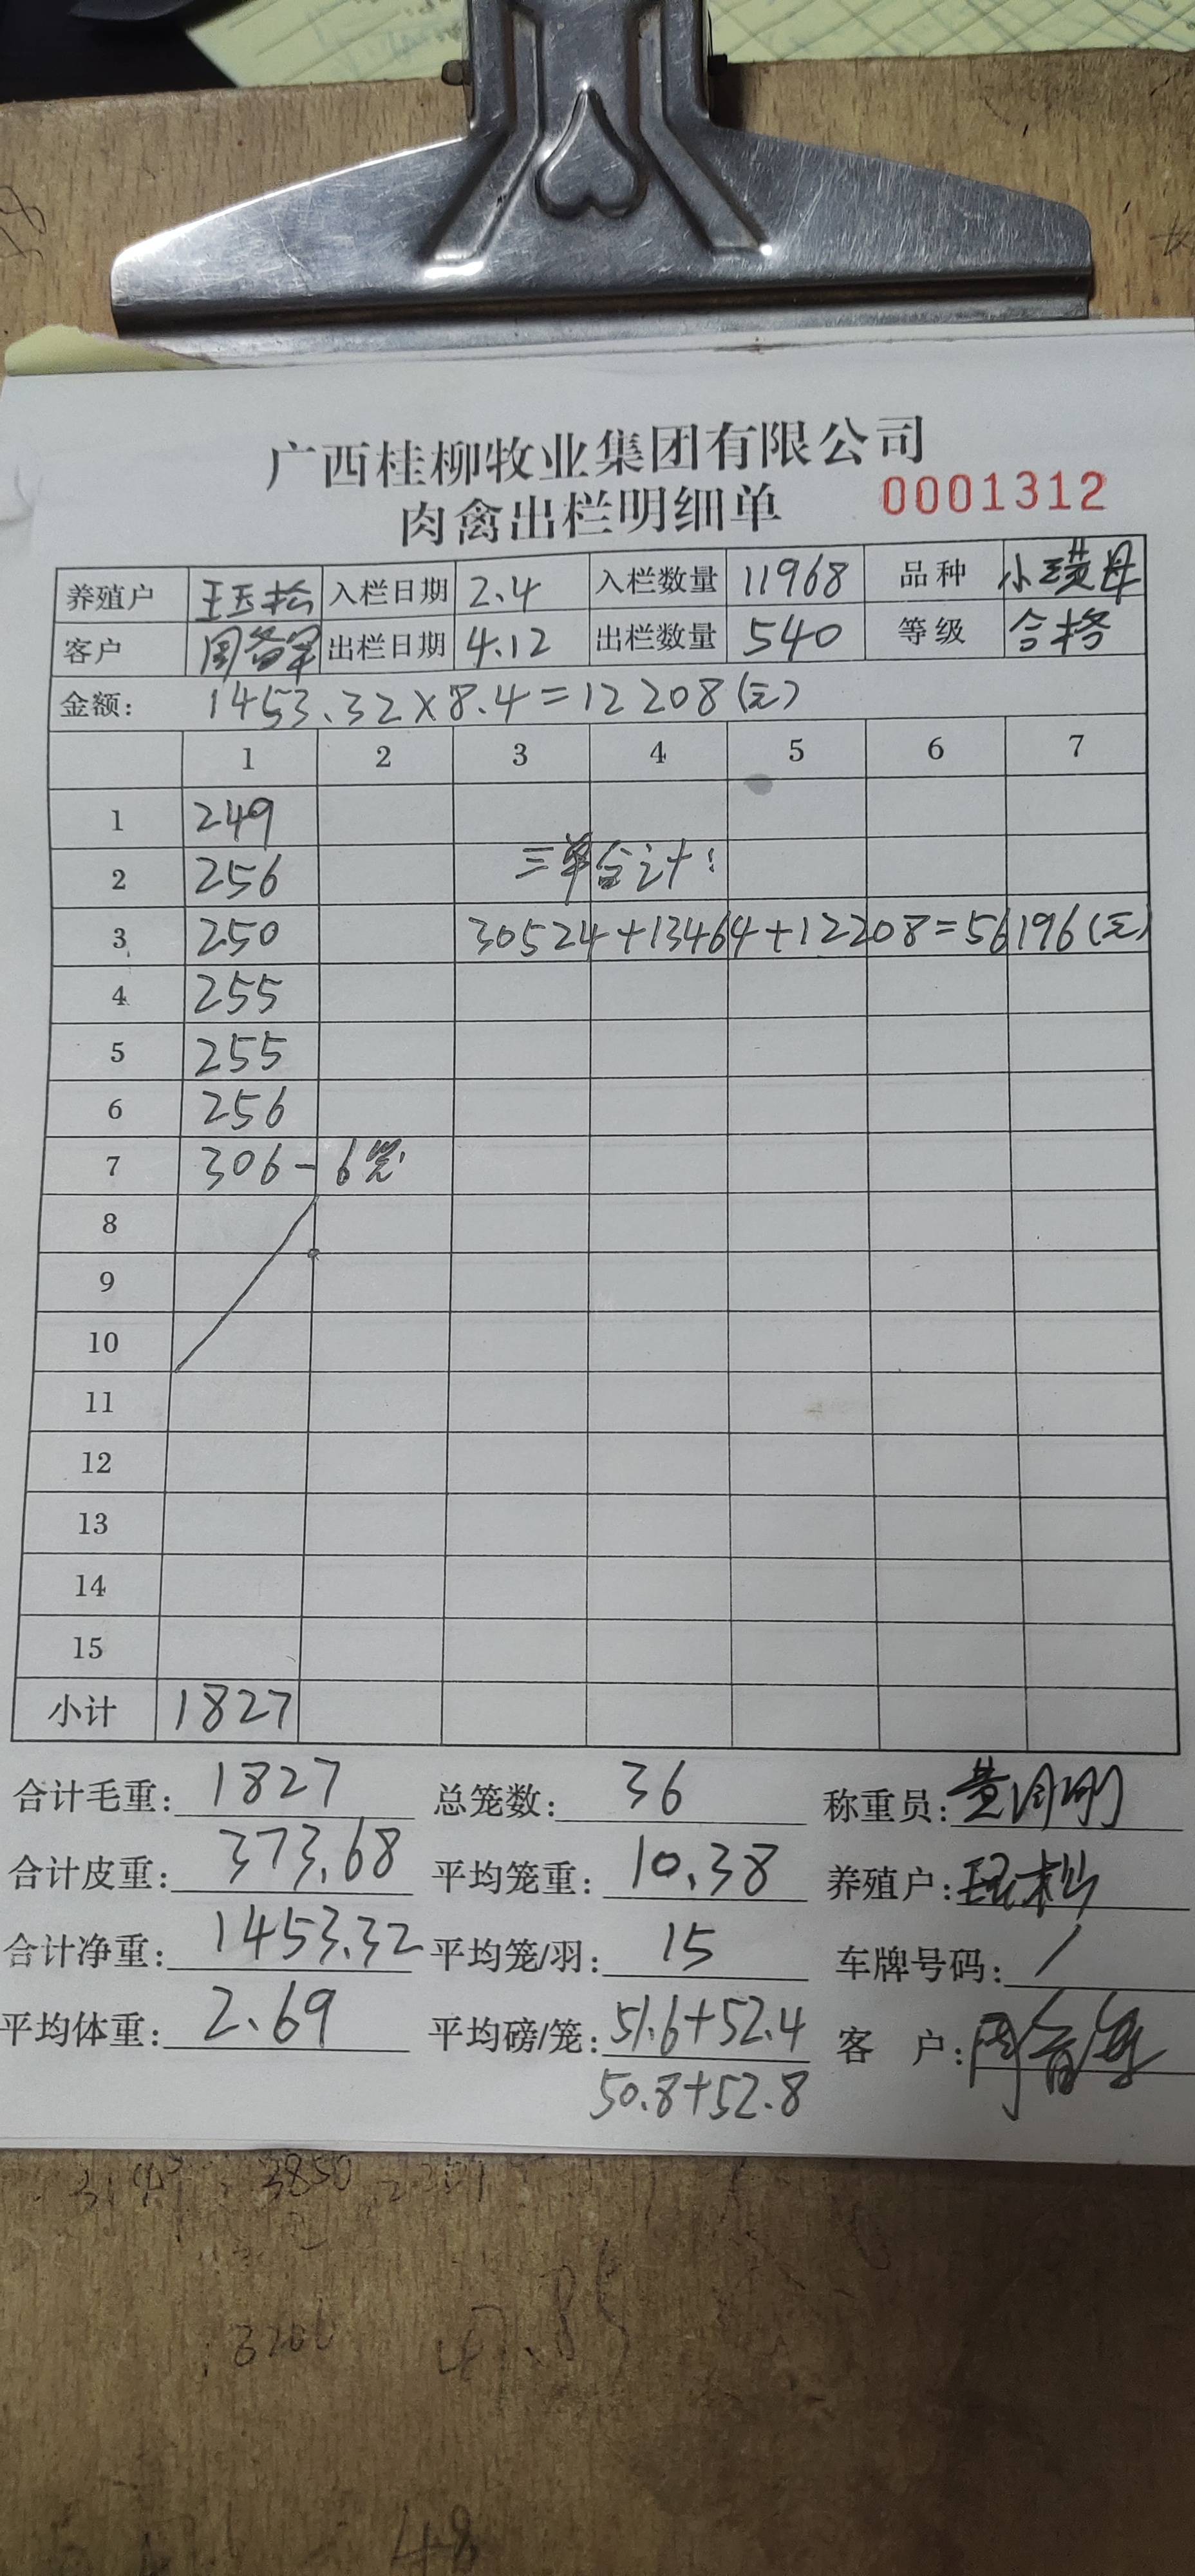 广西桂柳牧业集团有限公司
肉禽出栏明细单 0001312
养殖户 王玉松 入栏日期 2.4 入栏数量 11968 品种 小璜母
客户 出栏日期 4.12 出栏数量 540 等级 合格
金额: 1453.32×8.4=12208(元)
1 2 3 4 5 6 7
1 249
2 256 三单合计:
3 250 30524+13464+12208=56196(元)
4 255
5 255
6 256
7 306-6笼
8
9
10
11
12
13
14
15
小计 1827
合计毛重: 1827 总笼数: 36 称重员:
合计皮重: 373.68 平均笼重: 10.38 养殖户: 王玉松
合计净重: 1453.32 平均笼/羽: 15 车牌号码: /
平均体重: 2.69 平均磅/笼: 51.6+52.4 客 户:
50.8+52.8
48